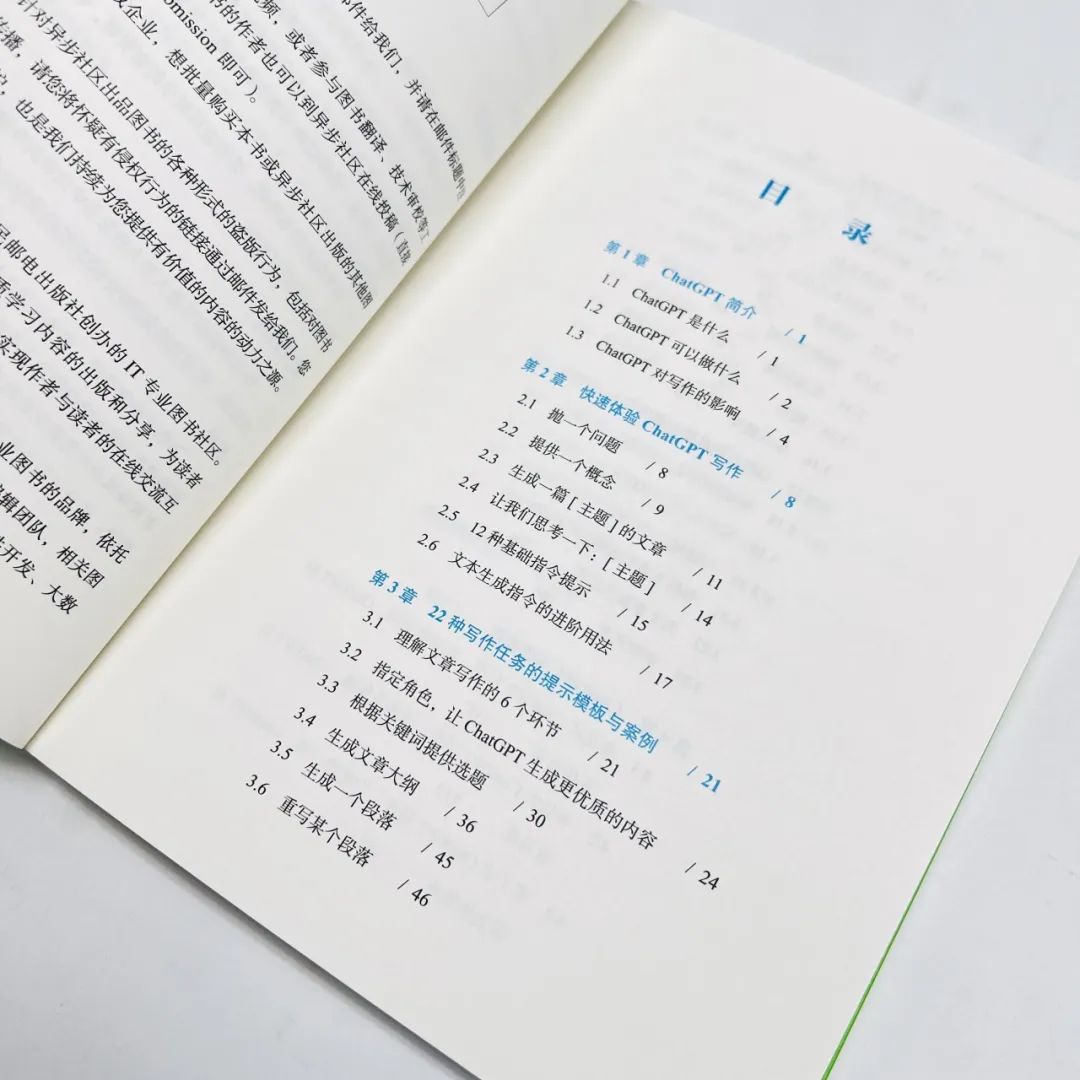 邮件给我们，并请在邮件标题中
频，或者参与图书翻译、技术审校等工
书的作者也可以到异步社区在线投稿（直接
omission 即可）。
企业，想批量购买本书或异步社区出版的其他图
针对异步社区出品图书的各种形式的盗版行为，包括对图书
传播，请您将怀疑有侵权行为的链接通过邮件发给我们。您
，也是我们持续为您提供有价值的内容的动力之源。
民邮电出版社创办的 IT 专业图书社区。
质学习内容的出版和分享，为读者
实现作者与读者的在线交流互
业图书的品牌，依托
辑团队，相关图
开发、大数
目 录
第 1 章 ChatGPT 简介 / 1
1.1 ChatGPT 是什么 / 1
1.2 ChatGPT 可以做什么 / 2
1.3 ChatGPT 对写作的影响 / 4
第 2 章 快速体验 ChatGPT 写作 / 8
2.1 抛一个问题 / 8
2.2 提供一个概念 / 9
2.3 生成一篇 [ 主题 ] 的文章 / 11
2.4 让我们思考一下：[ 主题 ] / 14
2.5 12 种基础指令提示 / 15
2.6 文本生成指令的进阶用法 / 17
第 3 章 22 种写作任务的提示模板与案例 / 21
3.1 理解文章写作的 6 个环节 / 21
3.2 指定角色，让 ChatGPT 生成更优质的内容 / 24
3.3 根据关键词提供选题 / 30
3.4 生成文章大纲 / 36
3.5 生成一个段落 / 45
3.6 重写某个段落 / 46